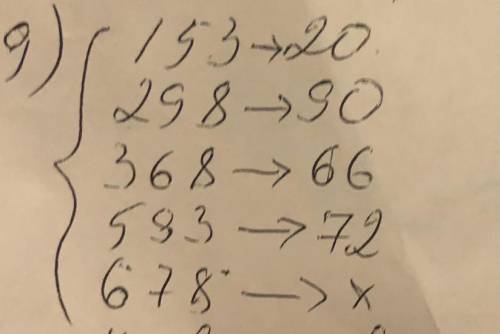 9) 153→20
298→90
368→66
593→72
678→x